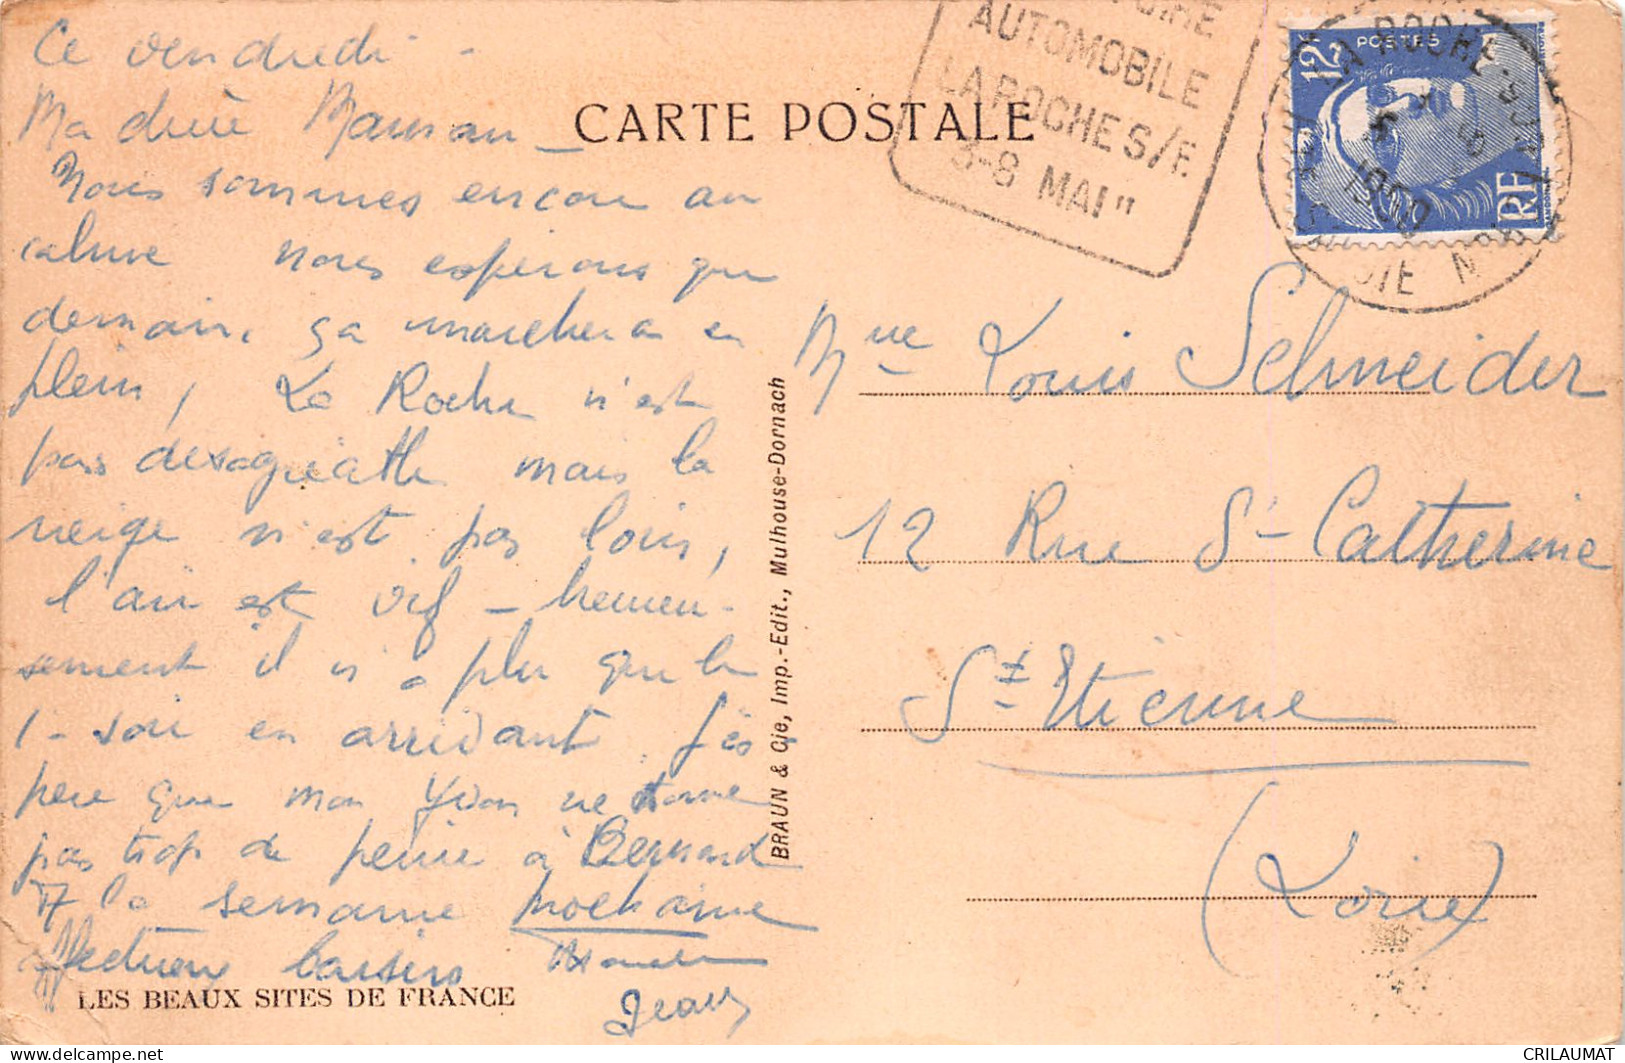 Ce vendredi -
Ma chère Maman _
Nous sommes encore au
calme nous espérons que
demain, ça marchera en
plein, La Roche n'est
pas désagréable mais la
neige n'est pas loin,
l'air est vif - heureu-
sement il n'a plu que le
soir en arrivant. J'es-
père que mon Yvon ne donne
pas trop de peine à Bernard
A la semaine prochaine
affectueux baisers
Jean
LES BEAUX SITES DE FRANCE
CARTE POSTALE
BRAUN & Cie, Imp.-Edit., Mulhouse-Dornach
AUTOMOBILE
LA ROCHE S/F.
3-8 MAI"
12F POSTES
RF
LA ROCHE-SUR-
1950
Mme Louis Schneider
12 Rue St Catherine
St Etienne
(Loire)
CRILAUMAT